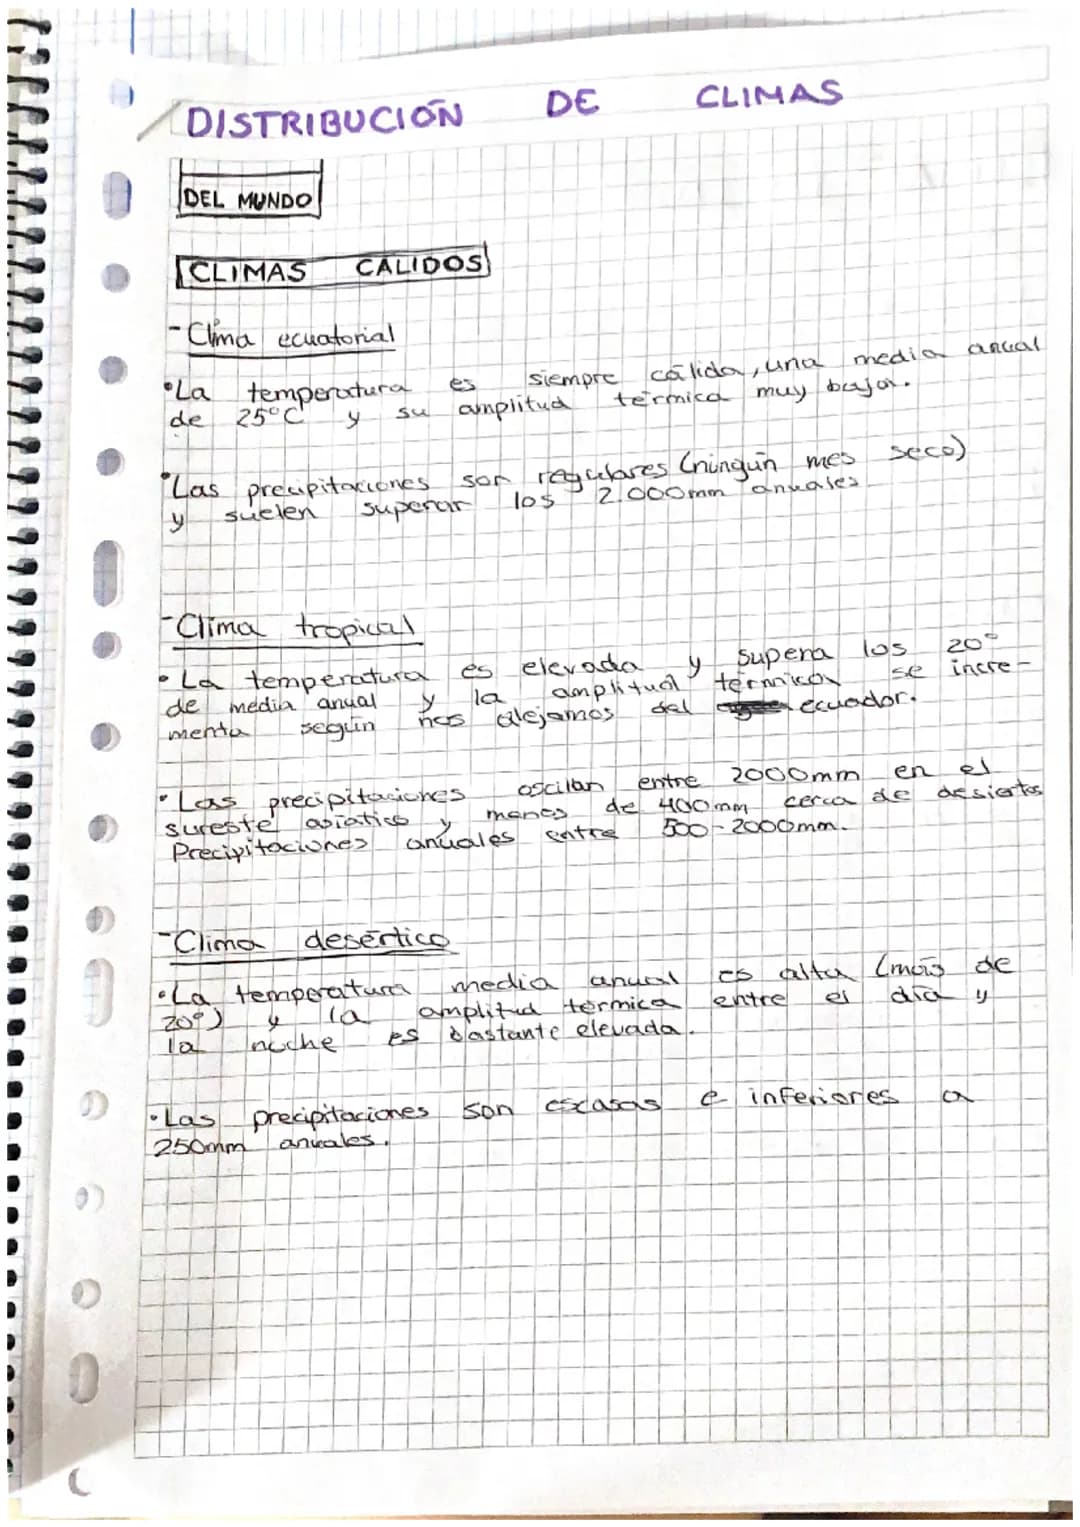 DISTRIBUCIÓN DE CLIMAS
DEL MUNDO
CLIMAS CÁLIDOS
- Clima ecuatorial
• La temperatura es siempre cálida, una media anual
de 25ºC y su amplitud térmica muy baja.
• Las precipitaciones son regulares (ningún mes seco)
y suelen superar los 2.000mm anuales.
- Clima tropical
• La temperatura es elevada y supera los 20º
de media anual y la amplitud térmica se incre-
menta según nos alejamos del ecuador.
• Las precipitaciones oscilan entre 2000mm en el
sureste asiático y menos de 400mm cerca de desiertos
Precipitaciones anuales entre 500-2000mm.
- Clima desértico
• La temperatura media anual es alta (más de
20º) y la amplitud térmica entre el día y
la noche es bastante elevada.
• Las precipitaciones son escasas e inferiores a
250mm anuales.